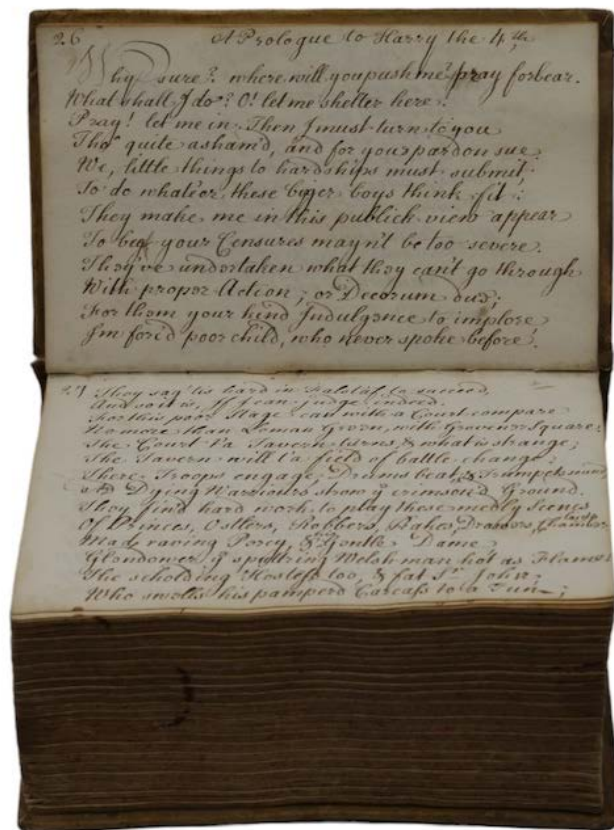 26
A Prologue to Harry the 4th
Why sure? where will you push me? pray forbear.
What shall I do? O! let me shelter here:
Pray! let me in. Then I must turn to you
Tho' quite asham'd, and for your pardon sue.
We, little things to hardships must submit;
To do whate'er these biger boys think fit:
They make me in this publick view appear
To beg your Censures mayn't be too severe.
They've undertaken what they can't go through
With proper Action, or Decorum due;
For them your kind Indulgence to implore
I'm forc'd poor child, who never spoke before!
27
They say 'tis hard in Falstaf to succeed,
And so it is, If I can judge indeed.
For this poor Stage can with a Court compare
No more than Leman Green, with Grovenor Square:
The Court t'a Tavern turns, & what is strange;
The Tavern will t'a field of battle change:
There Troops engage, Drums beat, & Trumpets
and Dying Warriours strow ye crimson'd Ground.
They find hard work to play these medly scenes
Of Princes, Ostlers, Robbers, Rakes, Drawers,
Mad, raving Percy, & Gentle Dame
Glendower, ye sputtring Welshman hot as Flame
The scholding Hostess too, & fat Sr. John;
Who swells his pamperd Carcass to a Tun;